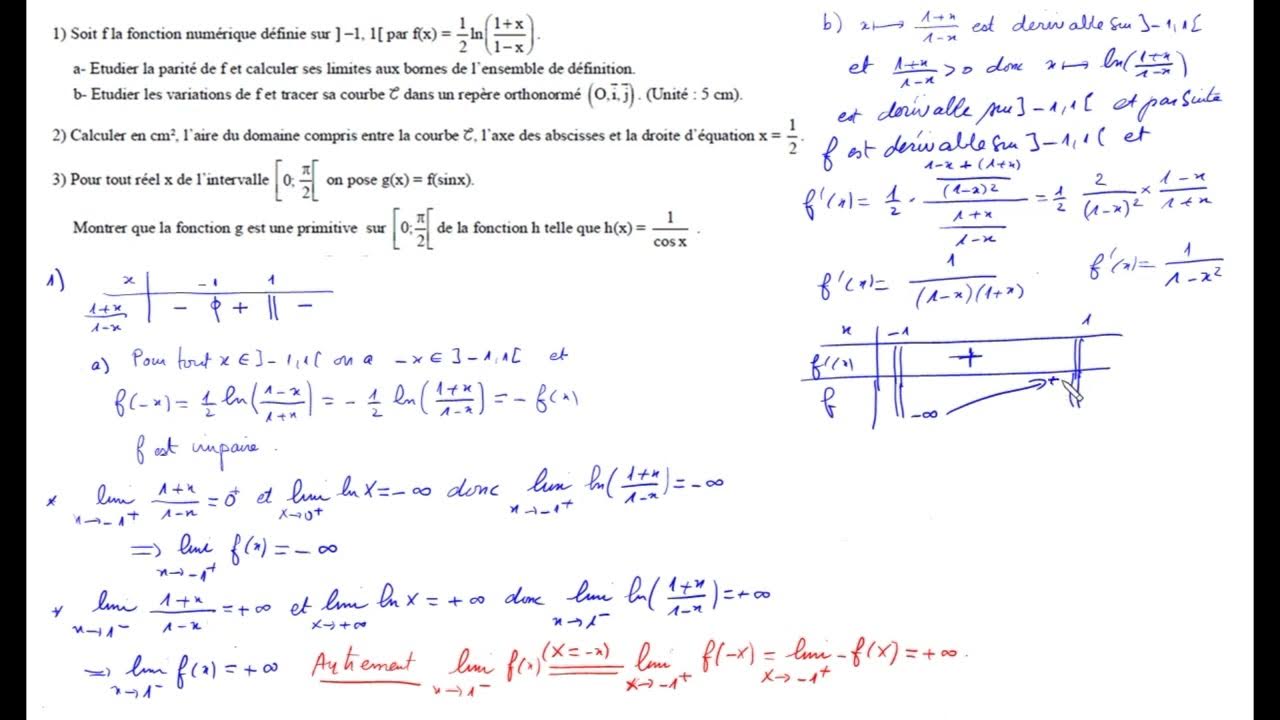 1) Soit f la fonction numérique définie sur ] −1, 1[ par f(x) = 1/2 ln((1+x)/(1−x)).
a- Etudier la parité de f et calculer ses limites aux bornes de l'ensemble de définition.
b- Etudier les variations de f et tracer sa courbe 𝒞 dans un repère orthonormé (O, i⃗, j⃗). (Unité : 5 cm).
2) Calculer en cm², l'aire du domaine compris entre la courbe 𝒞, l'axe des abscisses et la droite d'équation x = 1/2.
3) Pour tout réel x de l'intervalle [0; π/2[ on pose g(x) = f(sinx).
Montrer que la fonction g est une primitive sur [0; π/2[ de la fonction h telle que h(x) = 1/cos x .
1) x | −1 1
(1+x)/(1−x) | − ϕ + || −
a) Pour tout x ∈ ]−1,1[ on a −x ∈ ]−1,1[ et
f(−x) = 1/2 ln((1−x)/(1+x)) = − 1/2 ln((1+x)/(1−x)) = − f(x)
f est impaire .
* lim x→−1⁺ (1+x)/(1−x) = 0⁺ et lim X→0⁺ ln X = −∞ donc lim x→−1⁺ ln((1+x)/(1−x)) = −∞
⟹ lim x→−1⁺ f(x) = −∞
* lim x→1⁻ (1+x)/(1−x) = +∞ et lim X→+∞ ln X = +∞ donc lim x→1⁻ ln((1+x)/(1−x)) = +∞
⟹ lim x→1⁻ f(x) = +∞ Autrement lim x→1⁻ f(x) (X = −x) = lim X→−1⁺ f(−X) = lim X→−1⁺ −f(X) = +∞ .
b) x ⟼ (1+x)/(1−x) est derivable sur ]−1,1[
et (1+x)/(1−x) > 0 donc x ⟼ ln((1+x)/(1−x))
est derivable sur ]−1,1[ et par suite
f est dérivable sur ]−1,1[ et
f'(x) = 1/2 · ((1−x+(1+x))/(1−x)²)/((1+x)/(1−x)) = 1/2 2/(1−x)² × (1−x)/(1+x)
f'(x) = 1/((1−x)(1+x)) f'(x) = 1/(1−x²)
x | −1 1
f'(x) | || + ||
f | || −∞ + ||